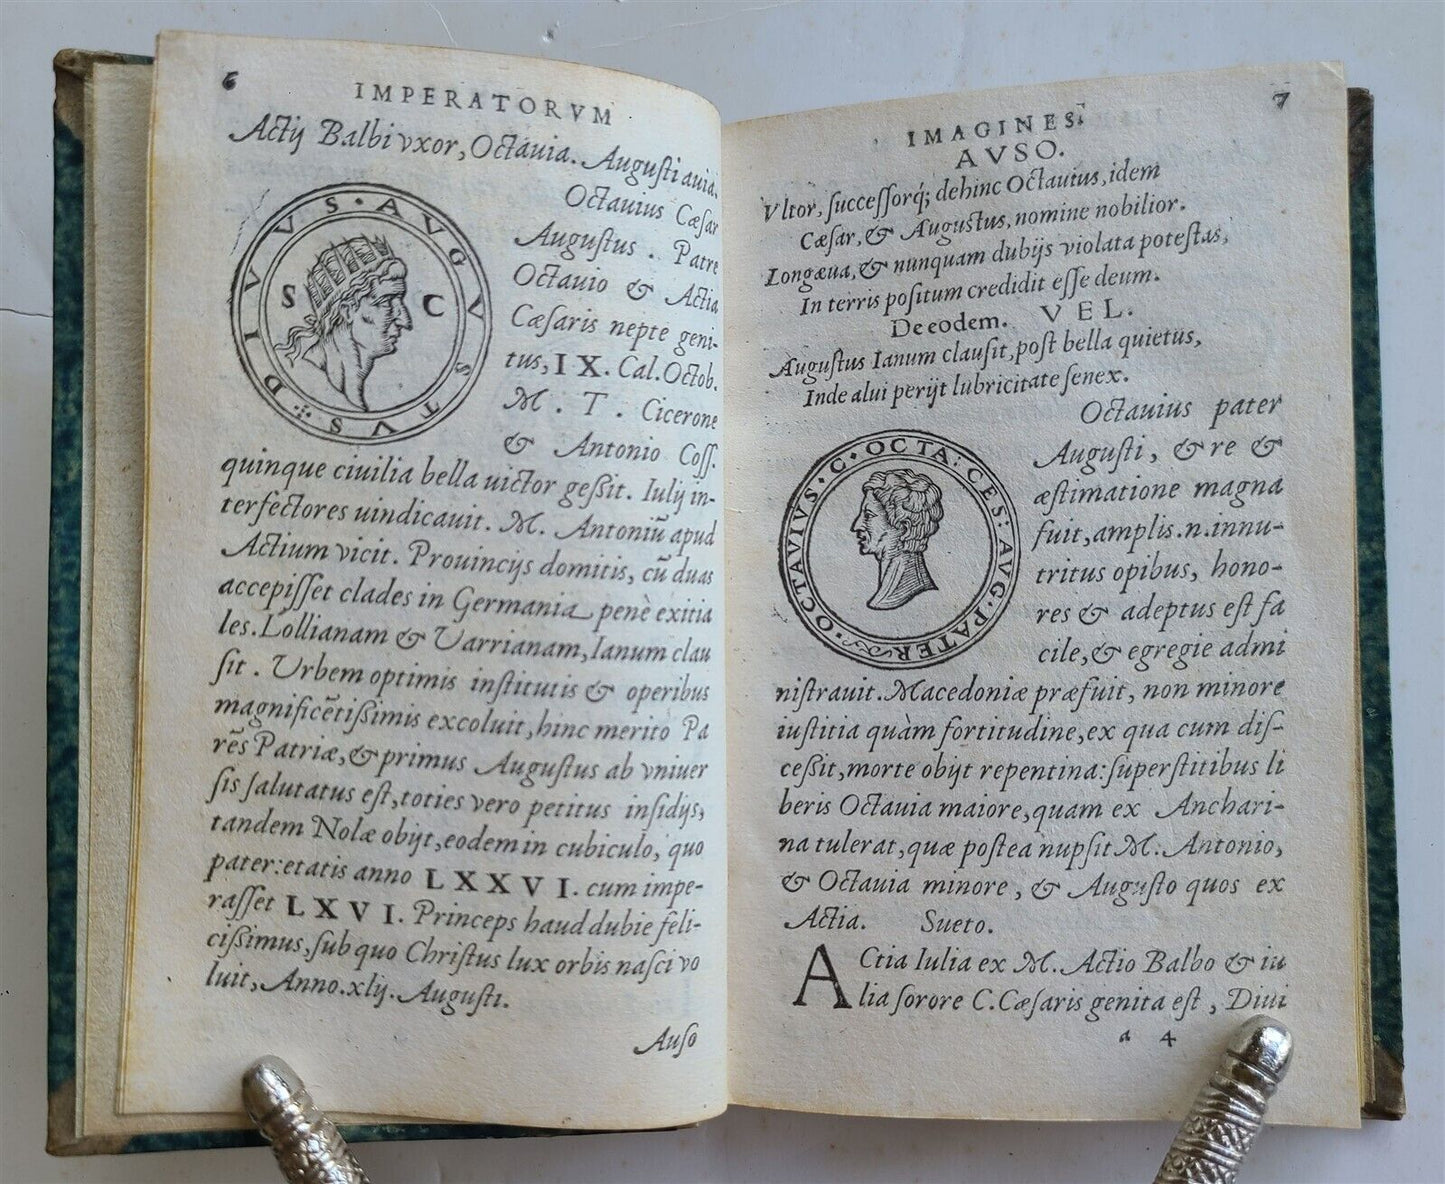 6
IMPERATORVM
Actij Balbi vxor, Octauia. Augusti auia.
DIVVS · AVGVSTVS
S C
Octauius Cæsar
Augustus. Patre
Octauio & Actia
Cæsaris nepte geni-
tus, IX. Cal. Octob.
M. T. Cicerone
& Antonio Coss.
quinque ciuilia bella uictor gessit. Iulij in-
terfectores uindicauit. M. Antoniũ apud
Actium vicit. Prouincijs domitis, cũ duas
accepisset clades in Germania penè exitia
les. Lollianam & Varrianam, Ianum clau
sit. Vrbem optimis institutis & operibus
magnificẽtissimis excoluit, hinc meritò Pa
rẽs Patriæ, & primus Augustus ab vniuer
sis salutatus est, toties vero petitus insidijs,
tandem Nolæ obijt, eodem in cubiculo, quo
pater: etatis anno LXXVI. cum impe-
rasset LXVI. Princeps haud dubie feli-
cissimus, sub quo Christus lux orbis nasci vo
luit, Anno. xlij. Augusti.
Auso
7
IMAGINES.
AVSO.
Vltor, successorq́; dehinc Octauius, idem
Cæsar, & Augustus, nomine nobilior.
Longæua, & nunquam dubijs violata potestas,
In terris positum credidit esse deum.
De eodem. VEL.
Augustus Ianum clausit, post bella quietus,
Inde alui perijt lubricitate senex.
OCTAVIVS · C · OCTA: CES: AVG · PATER
Octauius pater
Augusti, & re &
æstimatione magna
fuit, amplis. n. innu-
tritus opibus, hono-
res & adeptus est fa
cile, & egregie admi
nistrauit. Macedoniæ præfuit, non minore
iustitia quàm fortitudine, ex qua cum dis-
cessit, morte obijt repentina: superstitibus li
beris Octauia maiore, quam ex Anchari-
na tulerat, quæ postea nupsit M. Antonio,
& Octauia minore, & Augusto quos ex
Actia. Sueto.
ACtia Iulia ex M. Actio Balbo & iu
lia sorore C. Cæsaris genita est, Diui
a 4